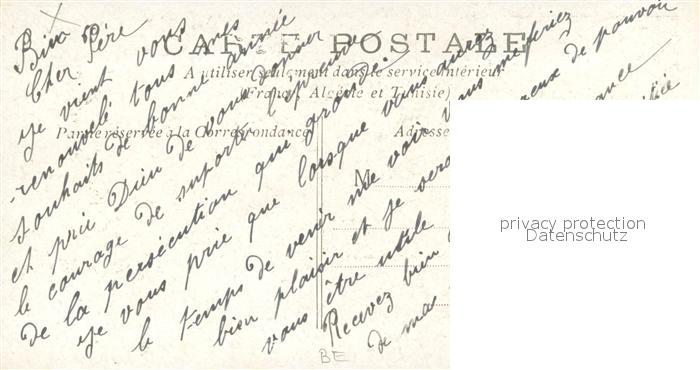 CARTE POSTALE
A utiliser seulement dans le service intérieur
(France, Algérie et Tunisie)
Partie réservée à la Correspondance
Adresse
M
Bien
Cher Père
Je vient vous
renouvelé tous mes
souhaits de bonne année
et prie Dieu de vous donner
le courage de suporté l'épreuve
de la persécution qui grandie.
Je vous prie que lorsque vous aurez
le temps de venir me voir vous me feriez
bien plaisir et je serai
reux de pouvoir
vous être utile
ance
Recevez bien
de ma
privacy protection
Datenschutz
BE